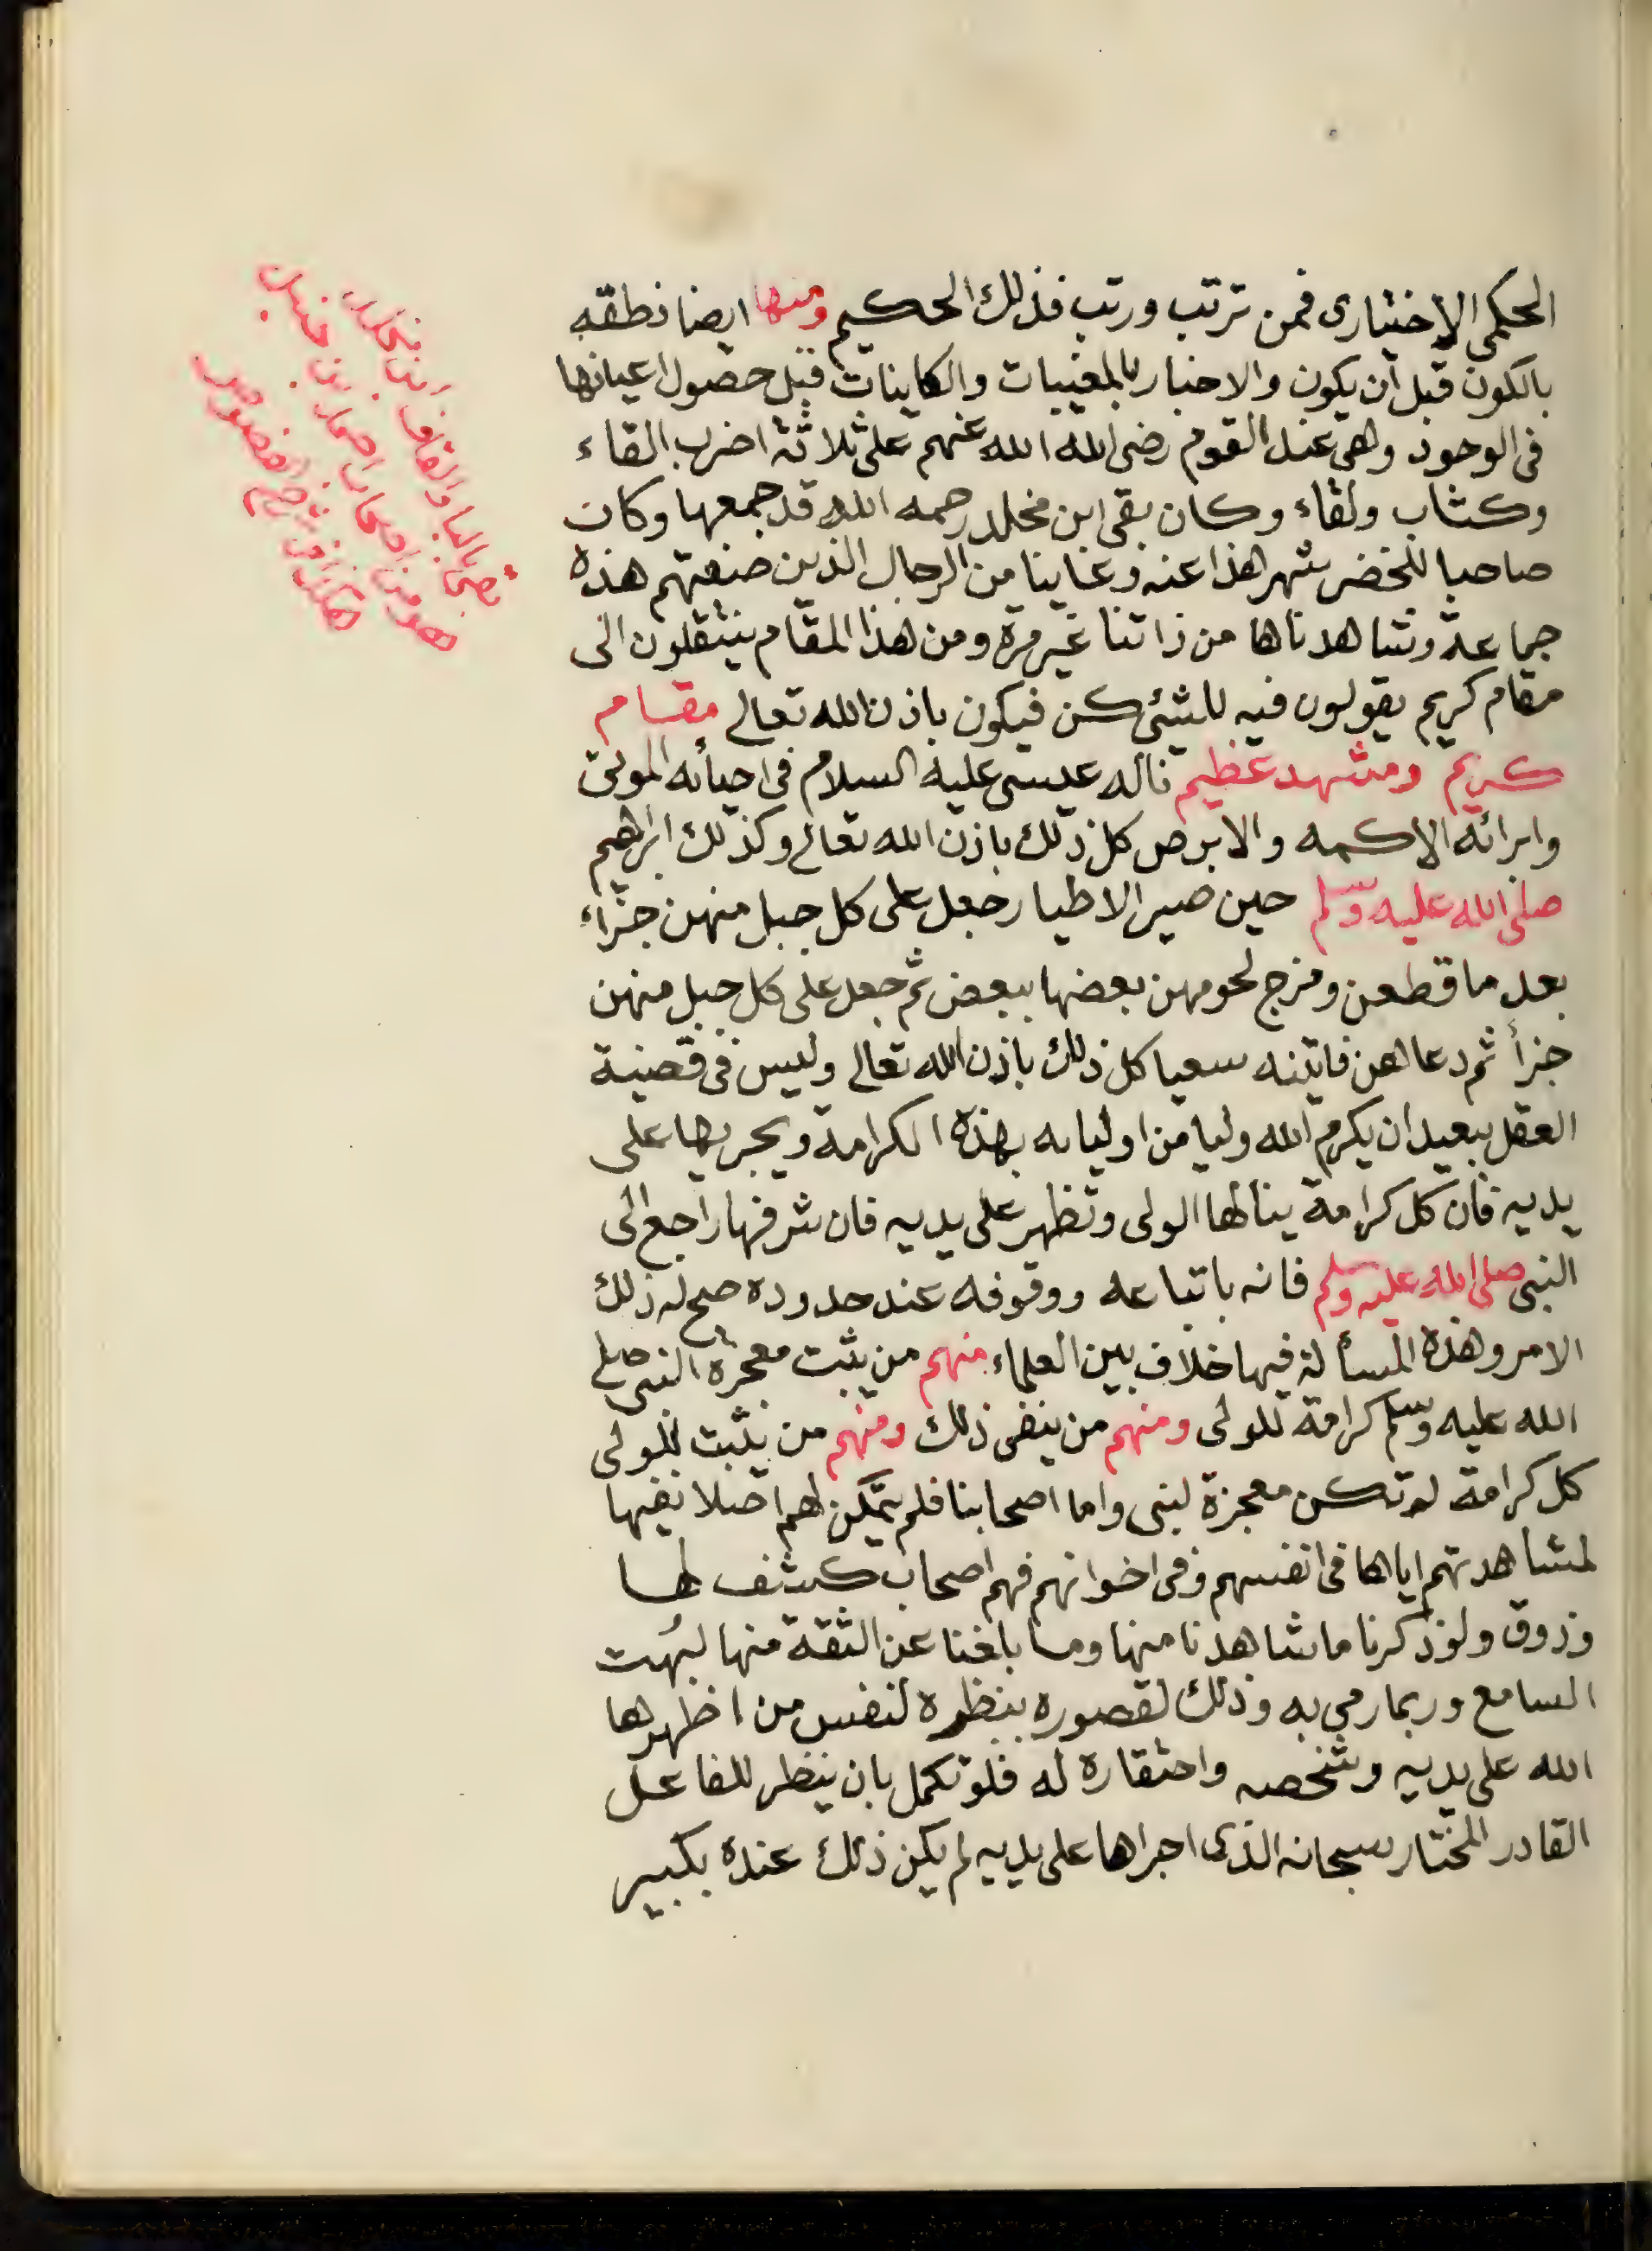 الحكمى الاختيارى فمن ترتب ورتب فذلك الحكيم ومنها ايضا نطقه
بالكون قبل أن يكون والاخبار بالمغيبات والكاينات قبل حصول اعيانها
فى الوجود وهى عند القوم رضى الله الله عنهم على ثلاثة اضرب القاء
وكتاب ولقاء وكان بقى ابن مخلد رحمه الله قد جمعها وكان
صاحبا للخضر شهر هذا عنه وعاينا من الرجال الذين صنعتهم هذه
جماعة وشاهدناها من ذاتنا غير مرة ومن هذا المقام ينتقلون الى
مقام كريم يقولون فيه للشئ كن فيكون باذن الله تعالى مقام
كريم ومشهد عظيم ناله عيسى عليه السلام فى احيائه الموتى
وابرائه الاكمه والابرص كل ذلك باذن الله تعالى وكذلك ابرهيم
صلى الله عليه وسلم حين صير الاطيار جعل على كل جبل منهن جزاء
بعد ما قطعن ومزج لحومهن بعضها ببعض ثم جعل على كل جبل منهن
جزأ ثم دعاهن فاتينه سعيا كل ذلك باذن الله تعالى وليس فى قضية
العقل ببعيد ان يكرم الله وليا من اوليايه بهذه الكرامة ويجريها على
يديه فان كل كرامة ينالها الولى وتظهر على يديه فان شرفها راجع الى
النبى صلى الله عليه وسلم فانه باتباعه ووقوفه عند حدوده صح له ذلك
الامر وهذه المسألة فيها خلاف بين العلماء منهم من يثبت معجزة النبى صلى
الله عليه وسلم كرامة للولى ومنهم من ينفى ذلك ومنهم من يثبت للولى
كل كرامة لم تكن معجزة لنبى واما اصحابنا فلم يتمكن لهم اصلا نفيها
لمشاهدتهم اياها فى انفسهم وفى اخوانهم فهم اصحاب كشف لها
وذوق ولو ذكرنا ما شاهدنا منها وما بلغنا عن الثقة منها لبهت
السامع وربما رمى به وذلك لقصوره بنظره لنفس من اظهرها
الله على يديه وشخصه واحتقاره له فلو تكمل بان ينظر للفاعل
القادر المختار سبحانه الذى اجراها على يديه لم يكن ذلك عنده بكبير
بقى بالبا والقاف ابن مخلد
هو من اصحاب احمد بن حنبل
هكذا من شرح الفصوص